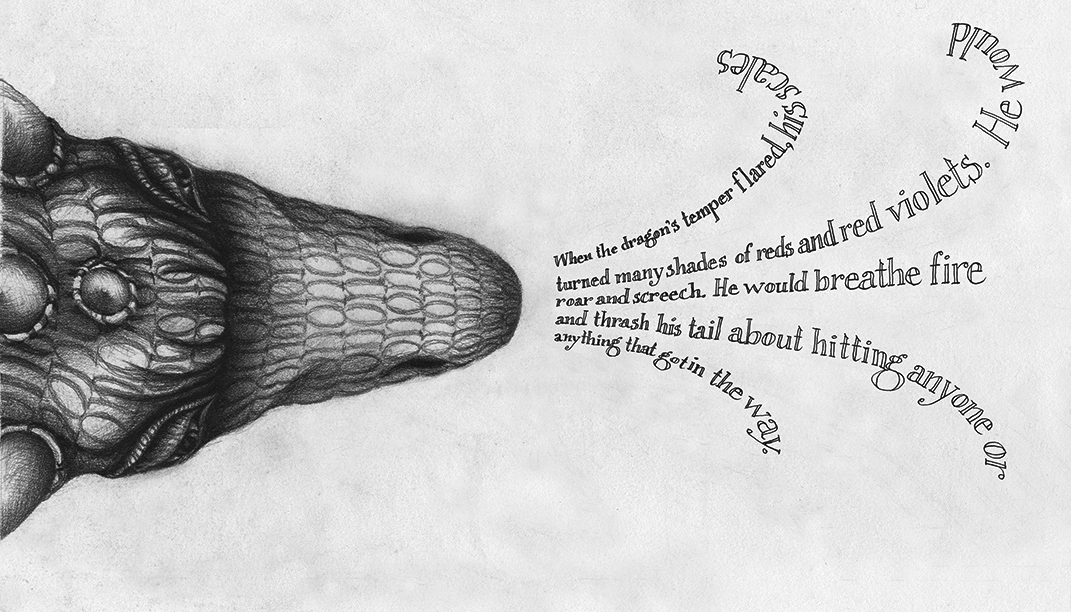 When the dragon's temper flared, his scales
turned many shades of reds and red violets. He would
roar and screech. He would breathe fire
and thrash his tail about hitting anyone or
anything that got in the way.